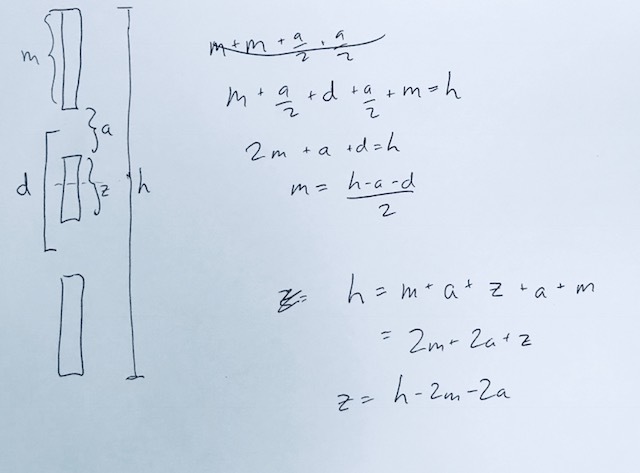 m
a
d
z
h
m + m + a/2 + a/2
m + a/2 + d + a/2 + m = h
2m + a + d = h
m = h-a-d/2
z = h = m + a + z + a + m
= 2m + 2a + z
z = h - 2m - 2a